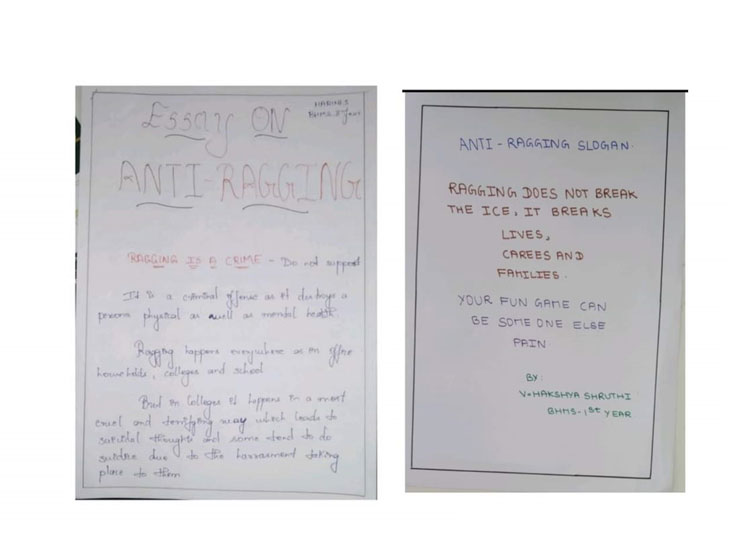 ESSAY ON
HARINI.S
BHMS I Year
ANTI-RAGGING
RAGGING IS A CRIME - Do not support
It is a criminal offense as it destroys a
persons physical as well as mental health.
Ragging happens everywhere as in office
households, colleges and school
But in colleges it happens in a most
cruel and terrifying way which leads to
suicidal thoughts and some tend to do
suicide due to the harrasment taking
place to them
ANTI - RAGGING SLOGAN.
RAGGING DOES NOT BREAK
THE ICE, IT BREAKS
LIVES,
CAREES AND
FAMILIES.
YOUR FUN GAME CAN
BE SOME ONE ELSE
PAIN
BY:
SHRUTHI
BHMS-1st YEAR